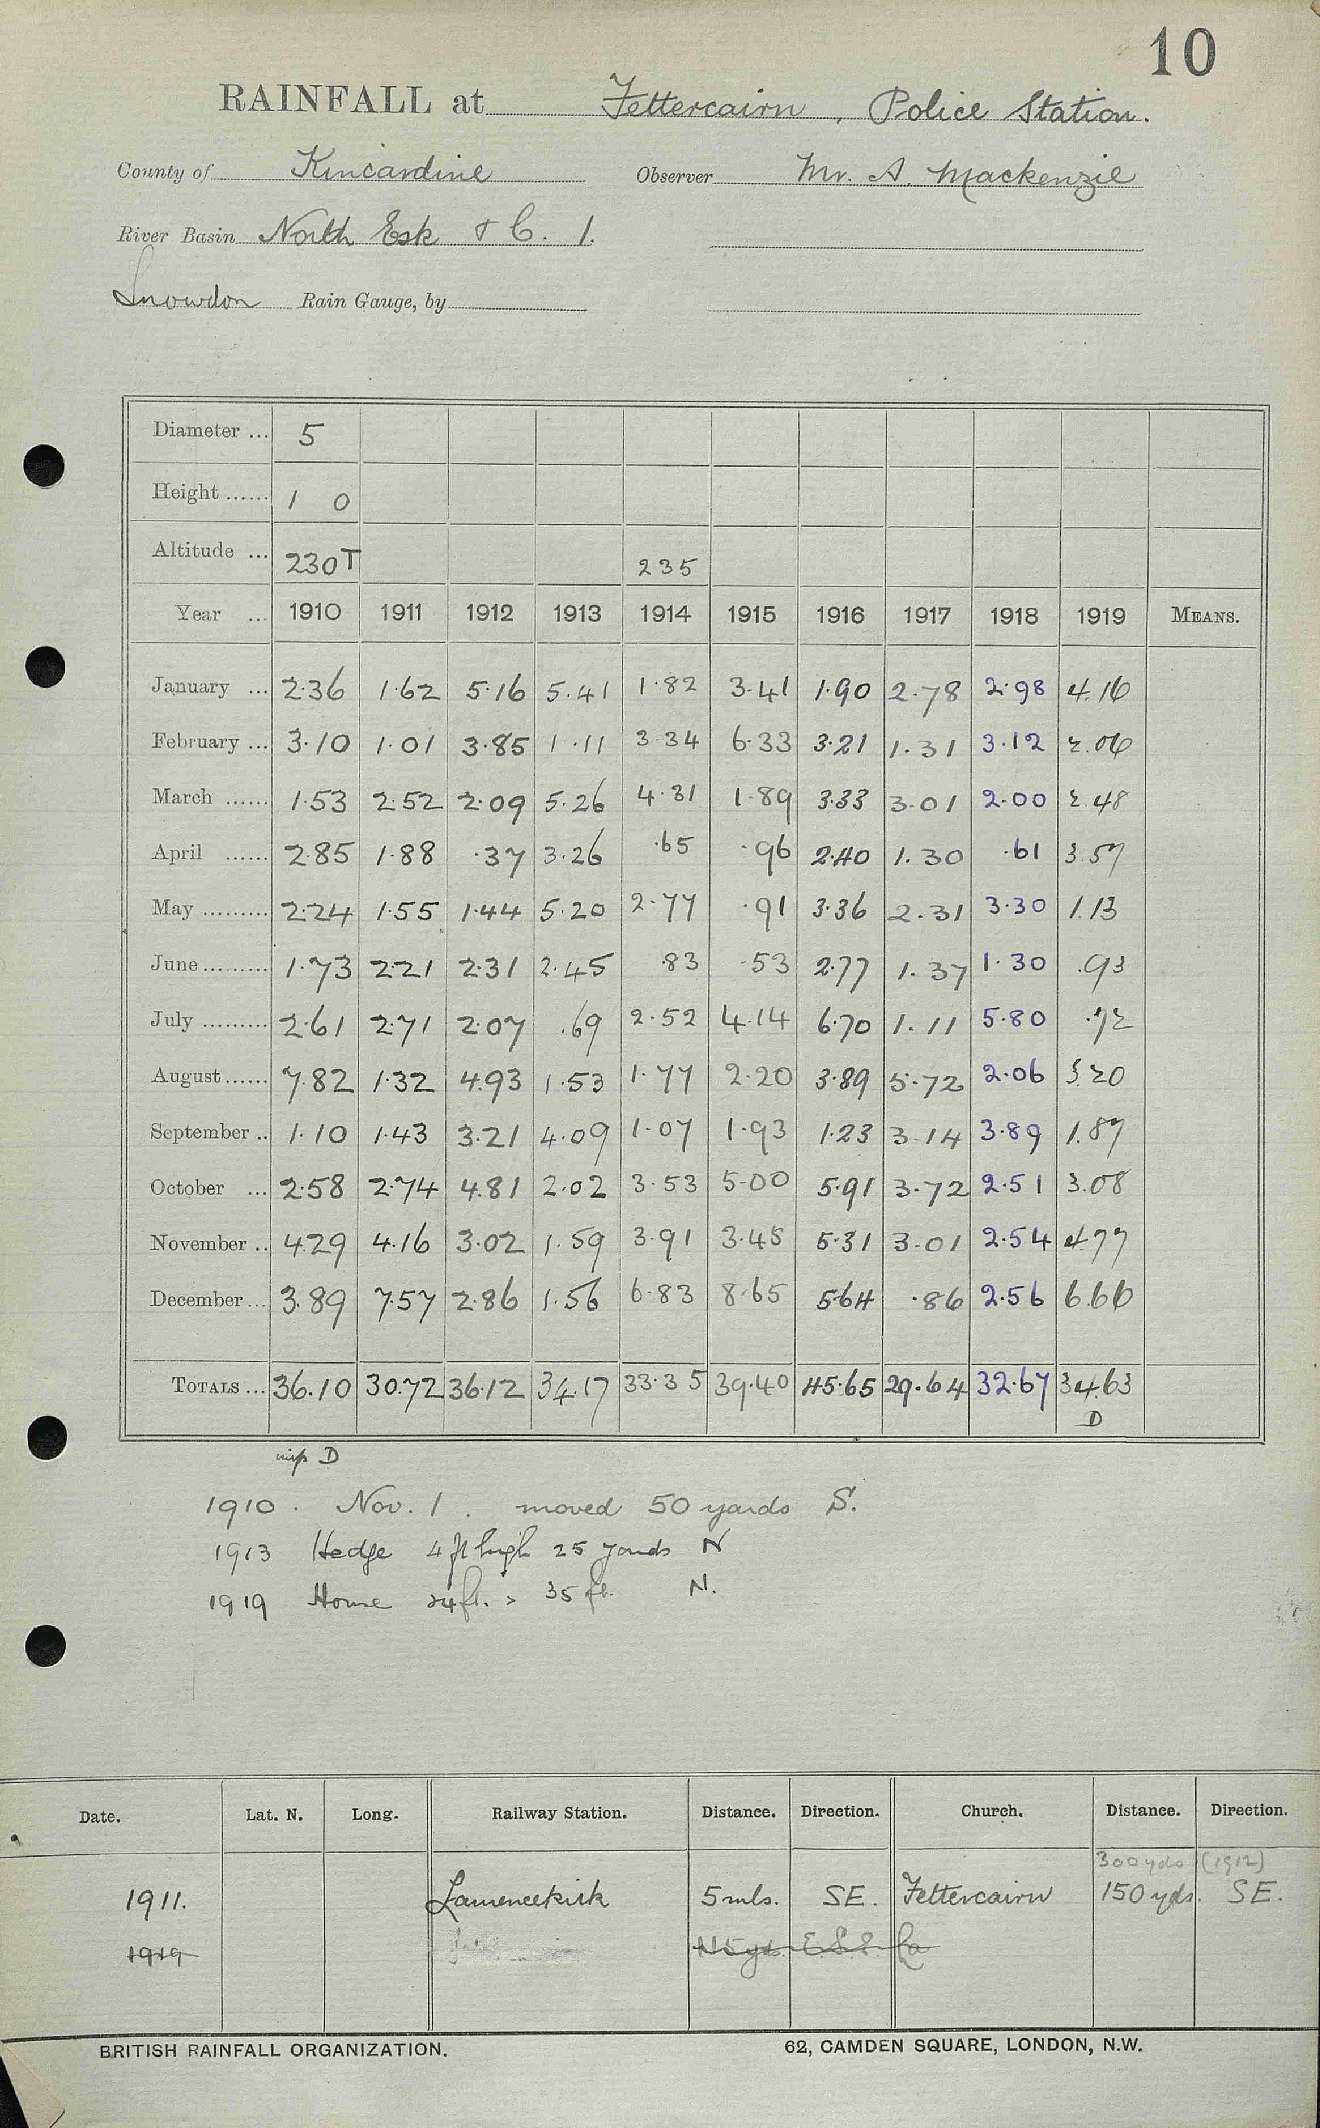 10
RAINFALL at Fettercairn, Police Station.
County of Kincardine Observer Mr. A. Mackenzie
River Basin North Esk & C. 1.
Snowdon Rain Gauge, by
Diameter ... 5
Height ...... 1 0
Altitude ... 230T 235
Year ... 1910 1911 1912 1913 1914 1915 1916 1917 1918 1919 MEANS.
January ... 2.36 1.62 5.16 5.41 1.82 3.41 1.90 2.78 2.98 4.16
February ... 3.10 1.01 3.85 1.11 3.34 6.33 3.21 1.31 3.12 2.06
March ...... 1.53 2.52 2.09 5.26 4.31 1.89 3.33 3.01 2.00 2.48
April ...... 2.85 1.88 .37 3.26 .65 .96 2.40 1.30 .61 3.57
May ......... 2.24 1.55 1.44 5.20 2.77 .91 3.36 2.31 3.30 1.13
June ......... 1.73 2.21 2.31 2.45 .83 .53 2.77 1.37 1.30 .93
July ......... 2.61 2.71 2.07 .69 2.52 4.14 6.70 1.11 5.80 .72
August ...... 7.82 1.32 4.93 1.53 1.77 2.20 3.89 5.72 2.06 3.20
September .. 1.10 1.43 3.21 4.09 1.07 1.93 1.23 3.14 3.89 1.87
October ... 2.58 2.74 4.81 2.02 3.53 5.00 5.91 3.72 2.51 3.08
November .. 4.29 4.16 3.02 1.59 3.91 3.45 5.31 3.01 2.54 4.77
December ... 3.89 7.57 2.86 1.56 6.83 8.65 5.64 .86 2.56 6.66
TOTALS ... 36.10 30.72 36.12 34.17 33.35 39.40 45.65 29.64 32.67 34.63
D
D
1910. Nov. 1. moved 50 yards S.
1913 Hedge 4 ft high 25 yards N
1919 House 24 ft. > 35 ft. N.
Date. Lat. N. Long. Railway Station. Distance. Direction. Church. Distance. Direction.
300 yds (1912)
1911. Laurencekirk 5 mls. SE. Fettercairn 150 yds. SE.
1919
BRITISH RAINFALL ORGANIZATION. 62, CAMDEN SQUARE, LONDON, N.W.